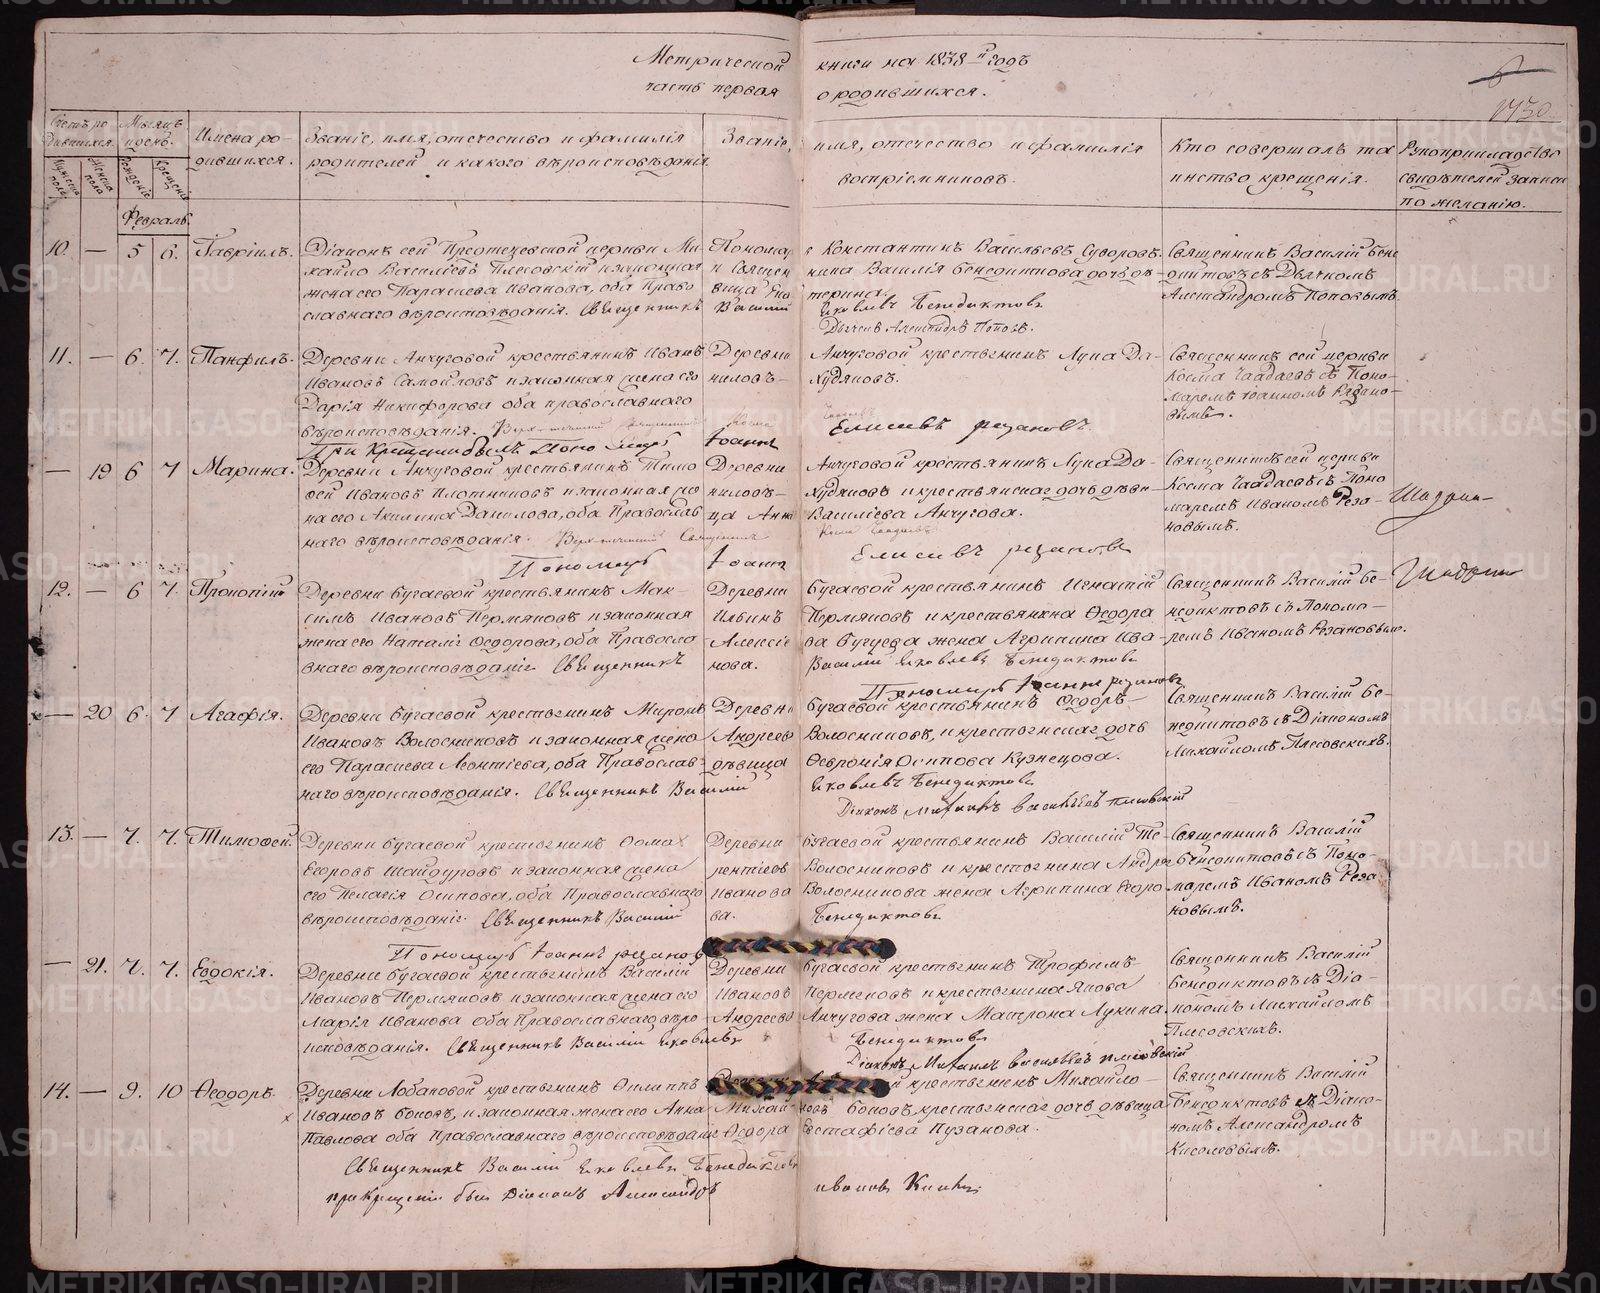 Метрической книги на 1838й годъ
часть первая о родившихся.
1730
Счетъ родившихся.
Мужеска пола
Женска пола
Мѣсяцъ и день.
Рожденiе
Крещенiе
Имена родившихся.
Званiе, имя, отечество и фамилiя
родителей и какого вѣроисповѣданiя
Званiе, имя, отечество и фамилiя
воспрiемниковъ.
Кто совершалъ та
инство крещенiя.
Рукоприкладство
свидѣтелей записи
по желанiю.
Февраль.
10. — 5 6. Гаврiилъ.
Дiаконъ сей Предтечевской церкви Ми-
хайло Василiевъ Плесовскiй и законная
жена его Параскева Иванова, оба Право
славнаго вѣроисповѣданiя. Священникъ
Понома
рь Константинъ Васильевъ Суворовъ
и Священ
ника Василiя Бенедиктова дочь дѣ-
вица Ека
терина.
Василiй Яковлевъ Бенедиктовъ
Дьячекъ Александръ Поповъ.
Священникъ Василiй Бене
диктовъ съ Дьячкомъ
Александромъ Поповымъ.
11. — 6. 7. Панфилъ.
Деревни Анчуговой крестьянинъ Иванъ
Ивановъ Самойловъ и законная жена его
Дарiя Никифорова оба православнаго
вѣроисповѣданiя.
При Крещенiи былъ Пономарь Iоаннъ
Деревни Анчуговой крестьянинъ Лука Да-
ниловъ Худяковъ.
Елисѣевъ Рѣзановъ
Священникъ сей церкви
Косма Чаадаевъ съ Поно-
маремъ Iоанномъ Рѣзано-
вымъ.
— 19 6 7 Марина.
Деревни Анчуговой крестьянинъ Тимо
фей Ивановъ Плотниковъ и законная же
на его Акилина Данилова, оба Православ
наго вѣроисповѣданiя.
Пономарь Iоаннъ
Деревни Анчуговой крестьянинъ Лука Да-
ниловъ Худяковъ и крестьянская дочь дѣви-
ца Анна Василiева Анчугова.
Елисѣевъ Рѣзановъ
Священникъ сей церкви
Косма Чаадаевъ съ Поно
маремъ Иваномъ Реза-
новымъ.
12. — 6 7. Прокопiй
Деревни Бугаевой крестьянинъ Мак-
симъ Ивановъ Пермяковъ и законная
жена его Наталiя Ѳеодорова, оба Правосла
внаго вѣроисповѣданiя Священникъ
Деревни Бугаевой крестьянинъ Игнатiй
Ильинъ Пермяковъ и крестьянина Ѳеодора
Алексiе
ва жена Агрипина Ива-
нова. Василiй Яковлевъ Бенедиктовъ
Пономарь Iоаннъ Рѣзановъ
Священникъ Василiй Бе-
недиктовъ съ Понома-
ремъ Иваномъ Резановымъ.
— 20 6. 7 Агафiя.
Деревни Бугаевой крестьянинъ Миронъ
Ивановъ Волосниковъ и законная жена
его Параскева Леонтiева, оба Православ-
наго вѣроисповѣданiя. Священникъ Василiй
Деревни Бугаевой крестьянинъ Ѳеодоръ
Андреевъ Волосниковъ, и крестьянская дочь
дѣвица Ѳеврониiя Осипова Кузнецова.
Яковлевъ Бенедиктовъ
Дiаконъ Михаилъ Васильевъ Плесовскiй
Священникъ Василiй Бе-
недиктовъ съ Дiакономъ
Михайломъ Плесовскихъ.
13. — 7. 7. Тимофей.
Деревни Бугаевой крестьянинъ Фома
Егоровъ Шайдуровъ и законная жена
его Пелагiя Осипова, оба Православнаго
вѣроисповѣданiя. Священникъ Василiй
Пономарь Iоаннъ Рѣзановъ
Деревни Бугаевой крестьянинъ Василiй Те-
рентiевъ Волосниковъ и крестьянина Андрея
Иванова Волосникова жена Агрипина Ѳеоро
ва. Бенедиктовъ
Священникъ Василiй
Бенедиктовъ съ Поно-
маремъ Иваномъ Реза
новымъ.
— 21. 7. 7. Евдокiя.
Деревни Бугаевой крестьянинъ Василiй
Ивановъ Пермяковъ и законная жена его
Марiя Иванова оба Православнаго вѣро-
исповѣданiя. Священникъ Василiй Яковлевъ
Деревни Бугаевой крестьянинъ Трофимъ
Ивановъ Пермяковъ и крестьянина Якова
Андреева Анчугова жена Матрона Лукина.
Бенедиктовъ
Дiаконъ Михаилъ Васильевъ Плесовскiй
Священникъ Василiй
Бенедиктовъ съ Дiа-
кономъ Михайломъ
Плесовскихъ.
14. — 9. 10 Ѳеодоръ.
Деревни Лобановой крестьянинъ Филиппъ
Ивановъ Боковъ, и законная жена его Анна
Павлова оба Православнаго вѣроисповѣданiя
Священникъ Василiй Яковлевъ Бенедиктовъ
при крещенiи былъ Дiаконъ Александръ
й крестьянинъ Михайло
Михай
ловъ Боковъ, крестьянская дочь дѣвица
Ѳедора Евстафiева Пузанова.
Священникъ Василiй
Бенедиктовъ съ Дiако-
номъ Александромъ
Киселевымъ.
METRIKI.GASO-URAL.RU